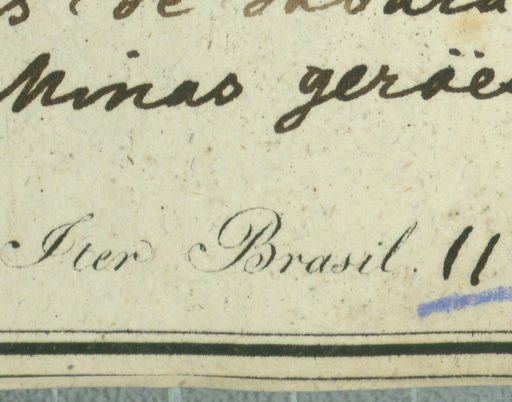 de
Minas geräe
Iter Brasil. 11